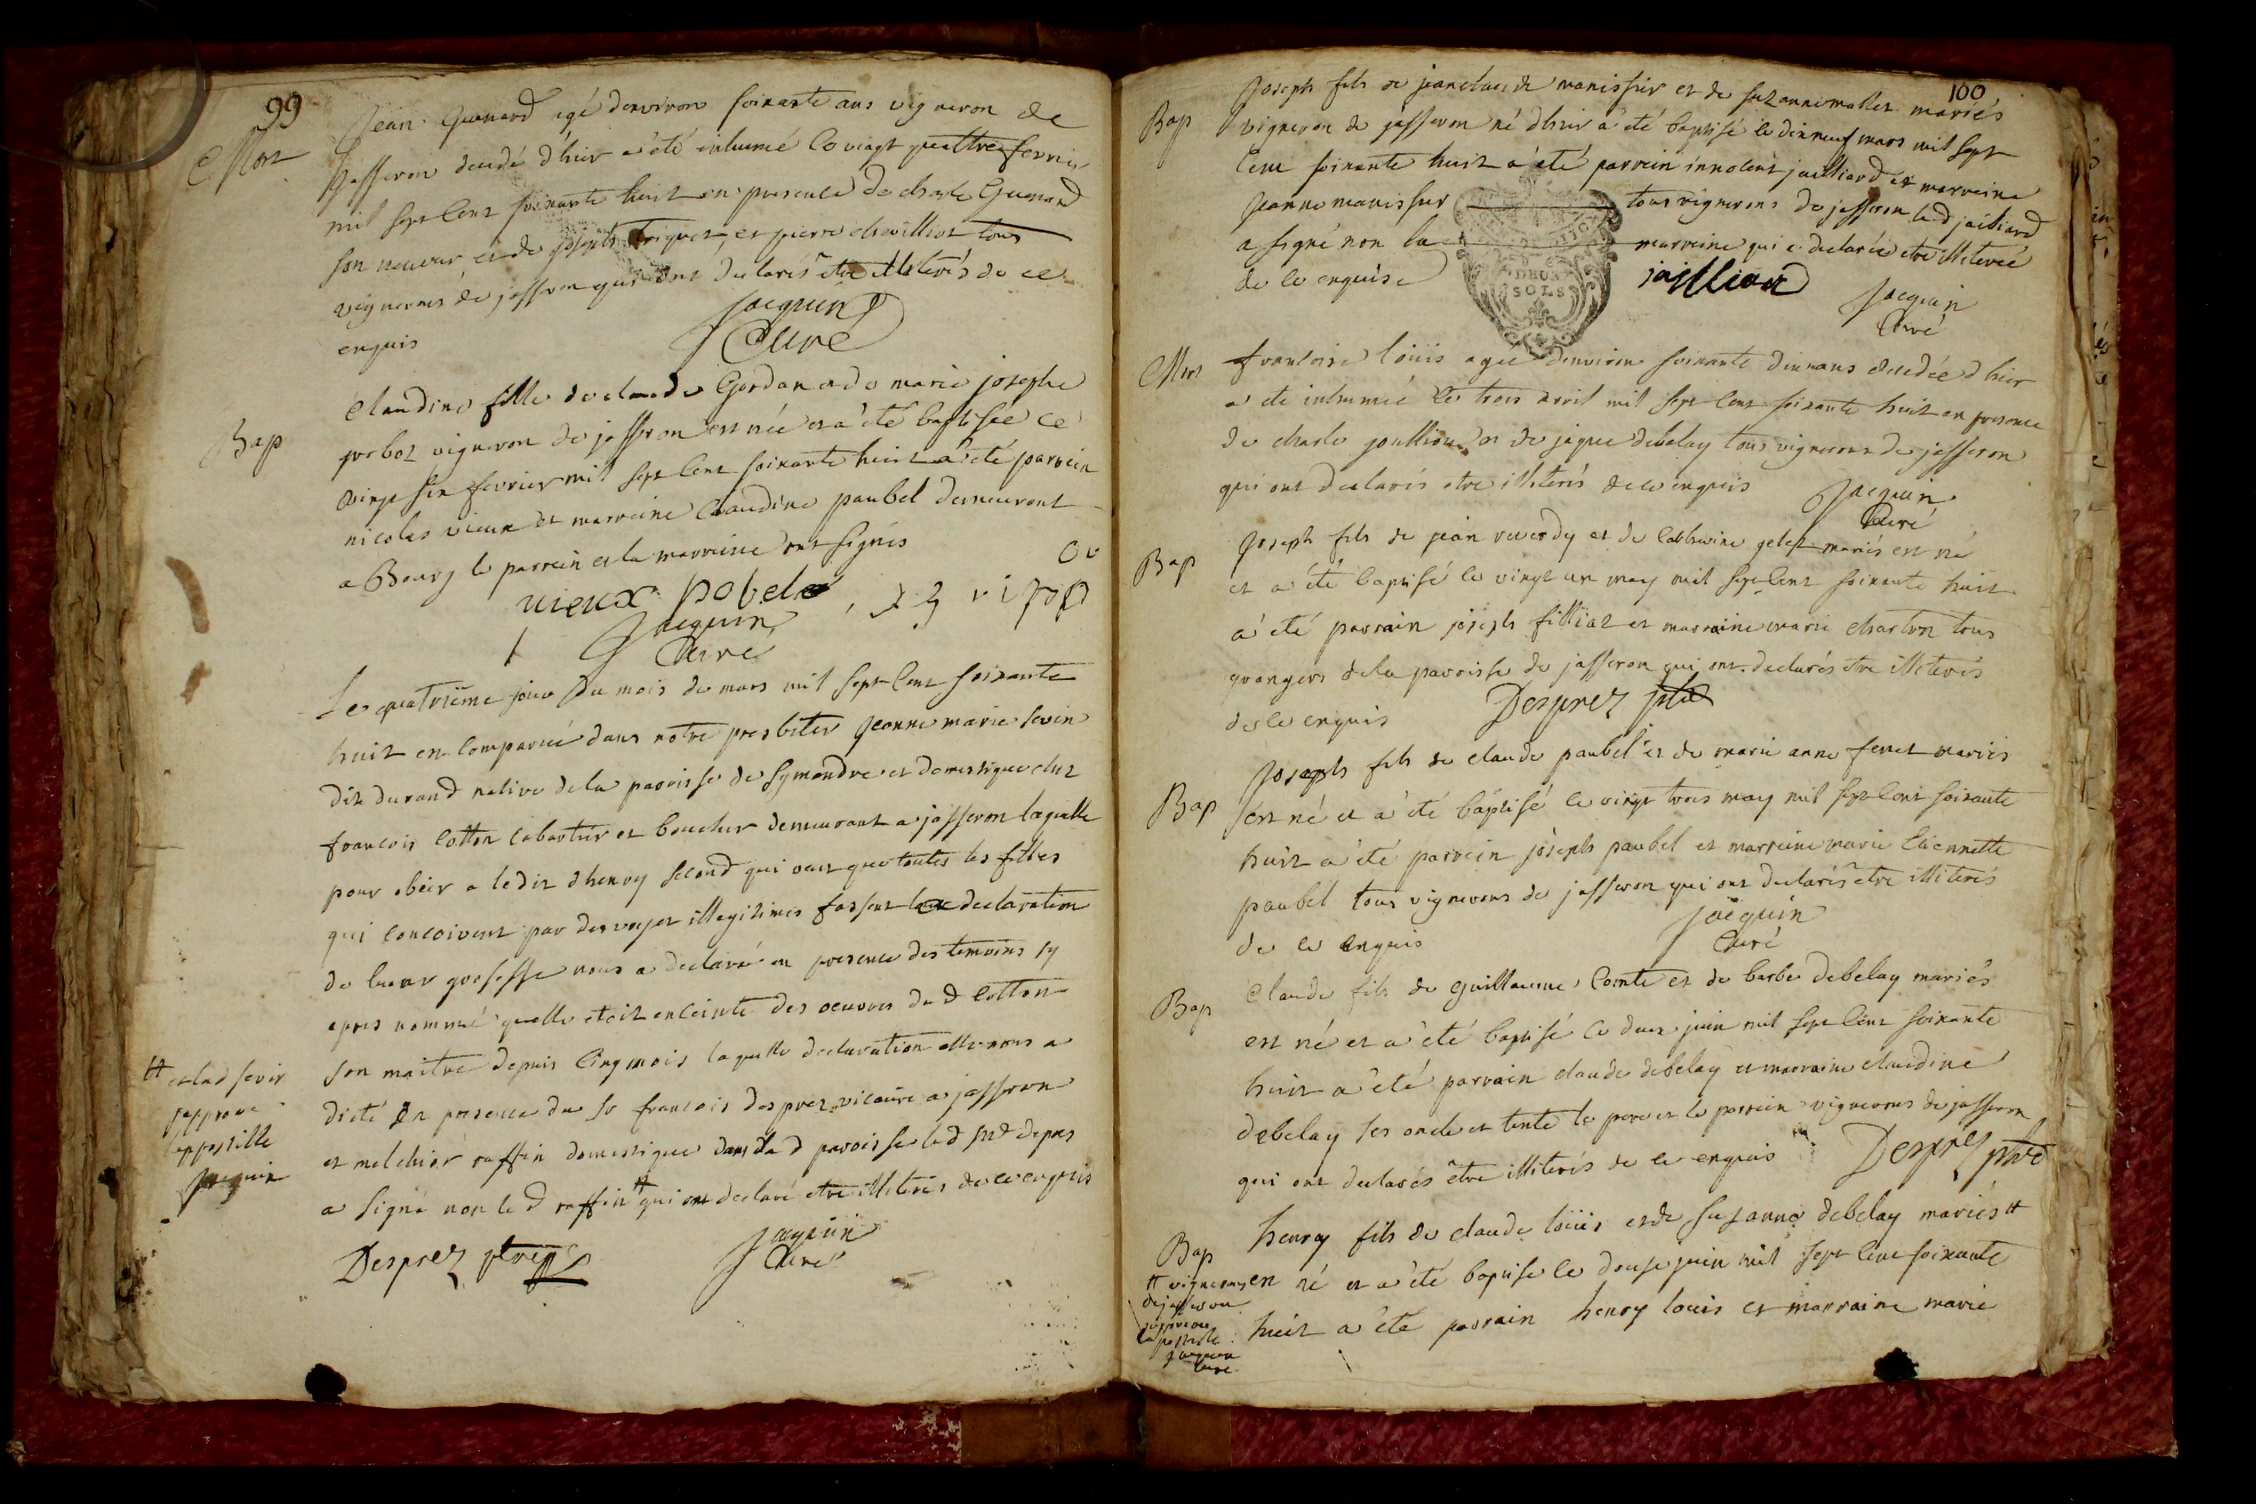 99
Mort
Jean Guenard agé denviron soixante ans vigneron de
Jasseron decedé d'hier a été inhumé le vingt quattre fevrier
mil sept cent soixante huit en presence de charle Guenard
son neveux et de joseph et pierre chevilliot tous
vignerons de jasseron qui ont declarés être illiterés de ce
enquis
Jacquin
Curé
Bap
Claudine fille de claude Gordan et de marie josephe
probot vigneron de jasseron est née et a été baptisée ce
vingt six fevrier mil sept cent soixante huit a été parrein
nicolas vieux et marreine Claudine paubel demeurant
a Bourg le parrein et la marreine ont signés
vieux pobel
Jacquin
Curé
Le quatrième jour du mois de mars mil sept cent soixante
huit en comparué dans notre presbiter Jeanne marie sevin
dit durand native de la paroisse de Symandre et domestique chez
francois cotton cabartier et boucher demeurant a jasseron laquelle
pour obéir a ledit d'henry second qui veut que toutes les filles
qui concoivent par des voyes illegitimes fassent leur declaration
de leur grosesse nous a declaré en presence des temoins sy
apres nommé quelle etoit enceinte des oeuvres dud cotton
son maitre depuis cinq mois laquelle declaration elle nous a
dicté en presence du sr francois desprez vicaire a jasseron
et melchior raffin domestique dans lad paroisse led sr deprez
a signé non le d raffin # qui ont declaré etre illiterés de ce enquis
# et lad sevin
japprove
lappostille
Jacquin
Desprez ptre
Jacquin
Curé
100
Bap
Joseph fils de jeanclaude manissier et de suzanne mallet mariés
vigneron de jasseron né d'hier a été baptisé le dix neuf mars mil sept
cent soixante huit a été parrein innocent jailliard et marreine
Jeanne manissier tous vignerons de jasseron led jailliard
a signé non la marreine qui a declarée etre illiterée
de ce enquise
DEUX
SOLS
jailliard
Jacquin
Curé
Mort
francoise loüis agée denviron soixante dix ans decedée d'hier
a été inhumée le trois avril mil sept cent soixante huit en presence
de charle et de jaque debelay tous vignerons de jasseron
qui ont declarés etre illiterés de ce enquis
Jacquin
Curé
Bap
Joseph fils de jean reverdy et de Catherine gelet mariés est né
et a été baptisé le vingt un may mil sept cent soixante huit
a été parrain joseph filliat et marraine marie charton tous
grangers de la paroisse de jasseron qui ont declarés etre illiterés
de ce enquis
Desprez ptre
Bap
Joseph fils de claude paubel et de marie anne feret mariés
est né et a été baptisé le vingt trois may mil sept cent soixante
huit a été parrein joseph paubel et marreine marie Etiennette
paubel tous vignerons de jasseron qui ont declarés etre illiterés
de ce enquis
Jacquin
Curé
Bap
Claude fils de guillaume Comte et de barbe debelay mariés
est né et a été baptisé le deux juin mil sept cent soixante
huit a été parrain claude debelay et marraine claudine
debelay ses oncle et tente le pere et le parrein vignerons de jasseron
qui ont declarés être illiterés de ce enquis
Desprez ptre
Bap
henry fils de claude loüis et de suzanne debelay mariés #
est né et a été baptise le douse juin mil sept cent soixante
huit a été parrain henry louis et marraine marie
# vignerons
de jasseron
japrove
lapostille
Jacquin
Curé